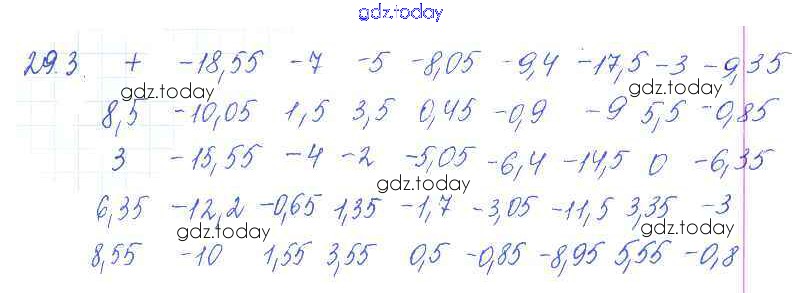 gdz.today
29.3. + -18,55 -7 -5 -8,05 -9,4 -17,5 -3 -9,35
gdz.today gdz.today
8,5 -10,05 1,5 3,5 0,45 -0,9 -9 5,5 -0,85
3 -15,55 -4 -2 -5,05 -6,4 -14,5 0 -6,35
gdz.today
6,35 -12,2 -0,65 1,35 -1,7 -3,05 -11,5 3,35 -3
gdz.today gdz.today
8,55 -10 1,55 3,55 0,5 -0,85 -8,95 5,55 -0,8